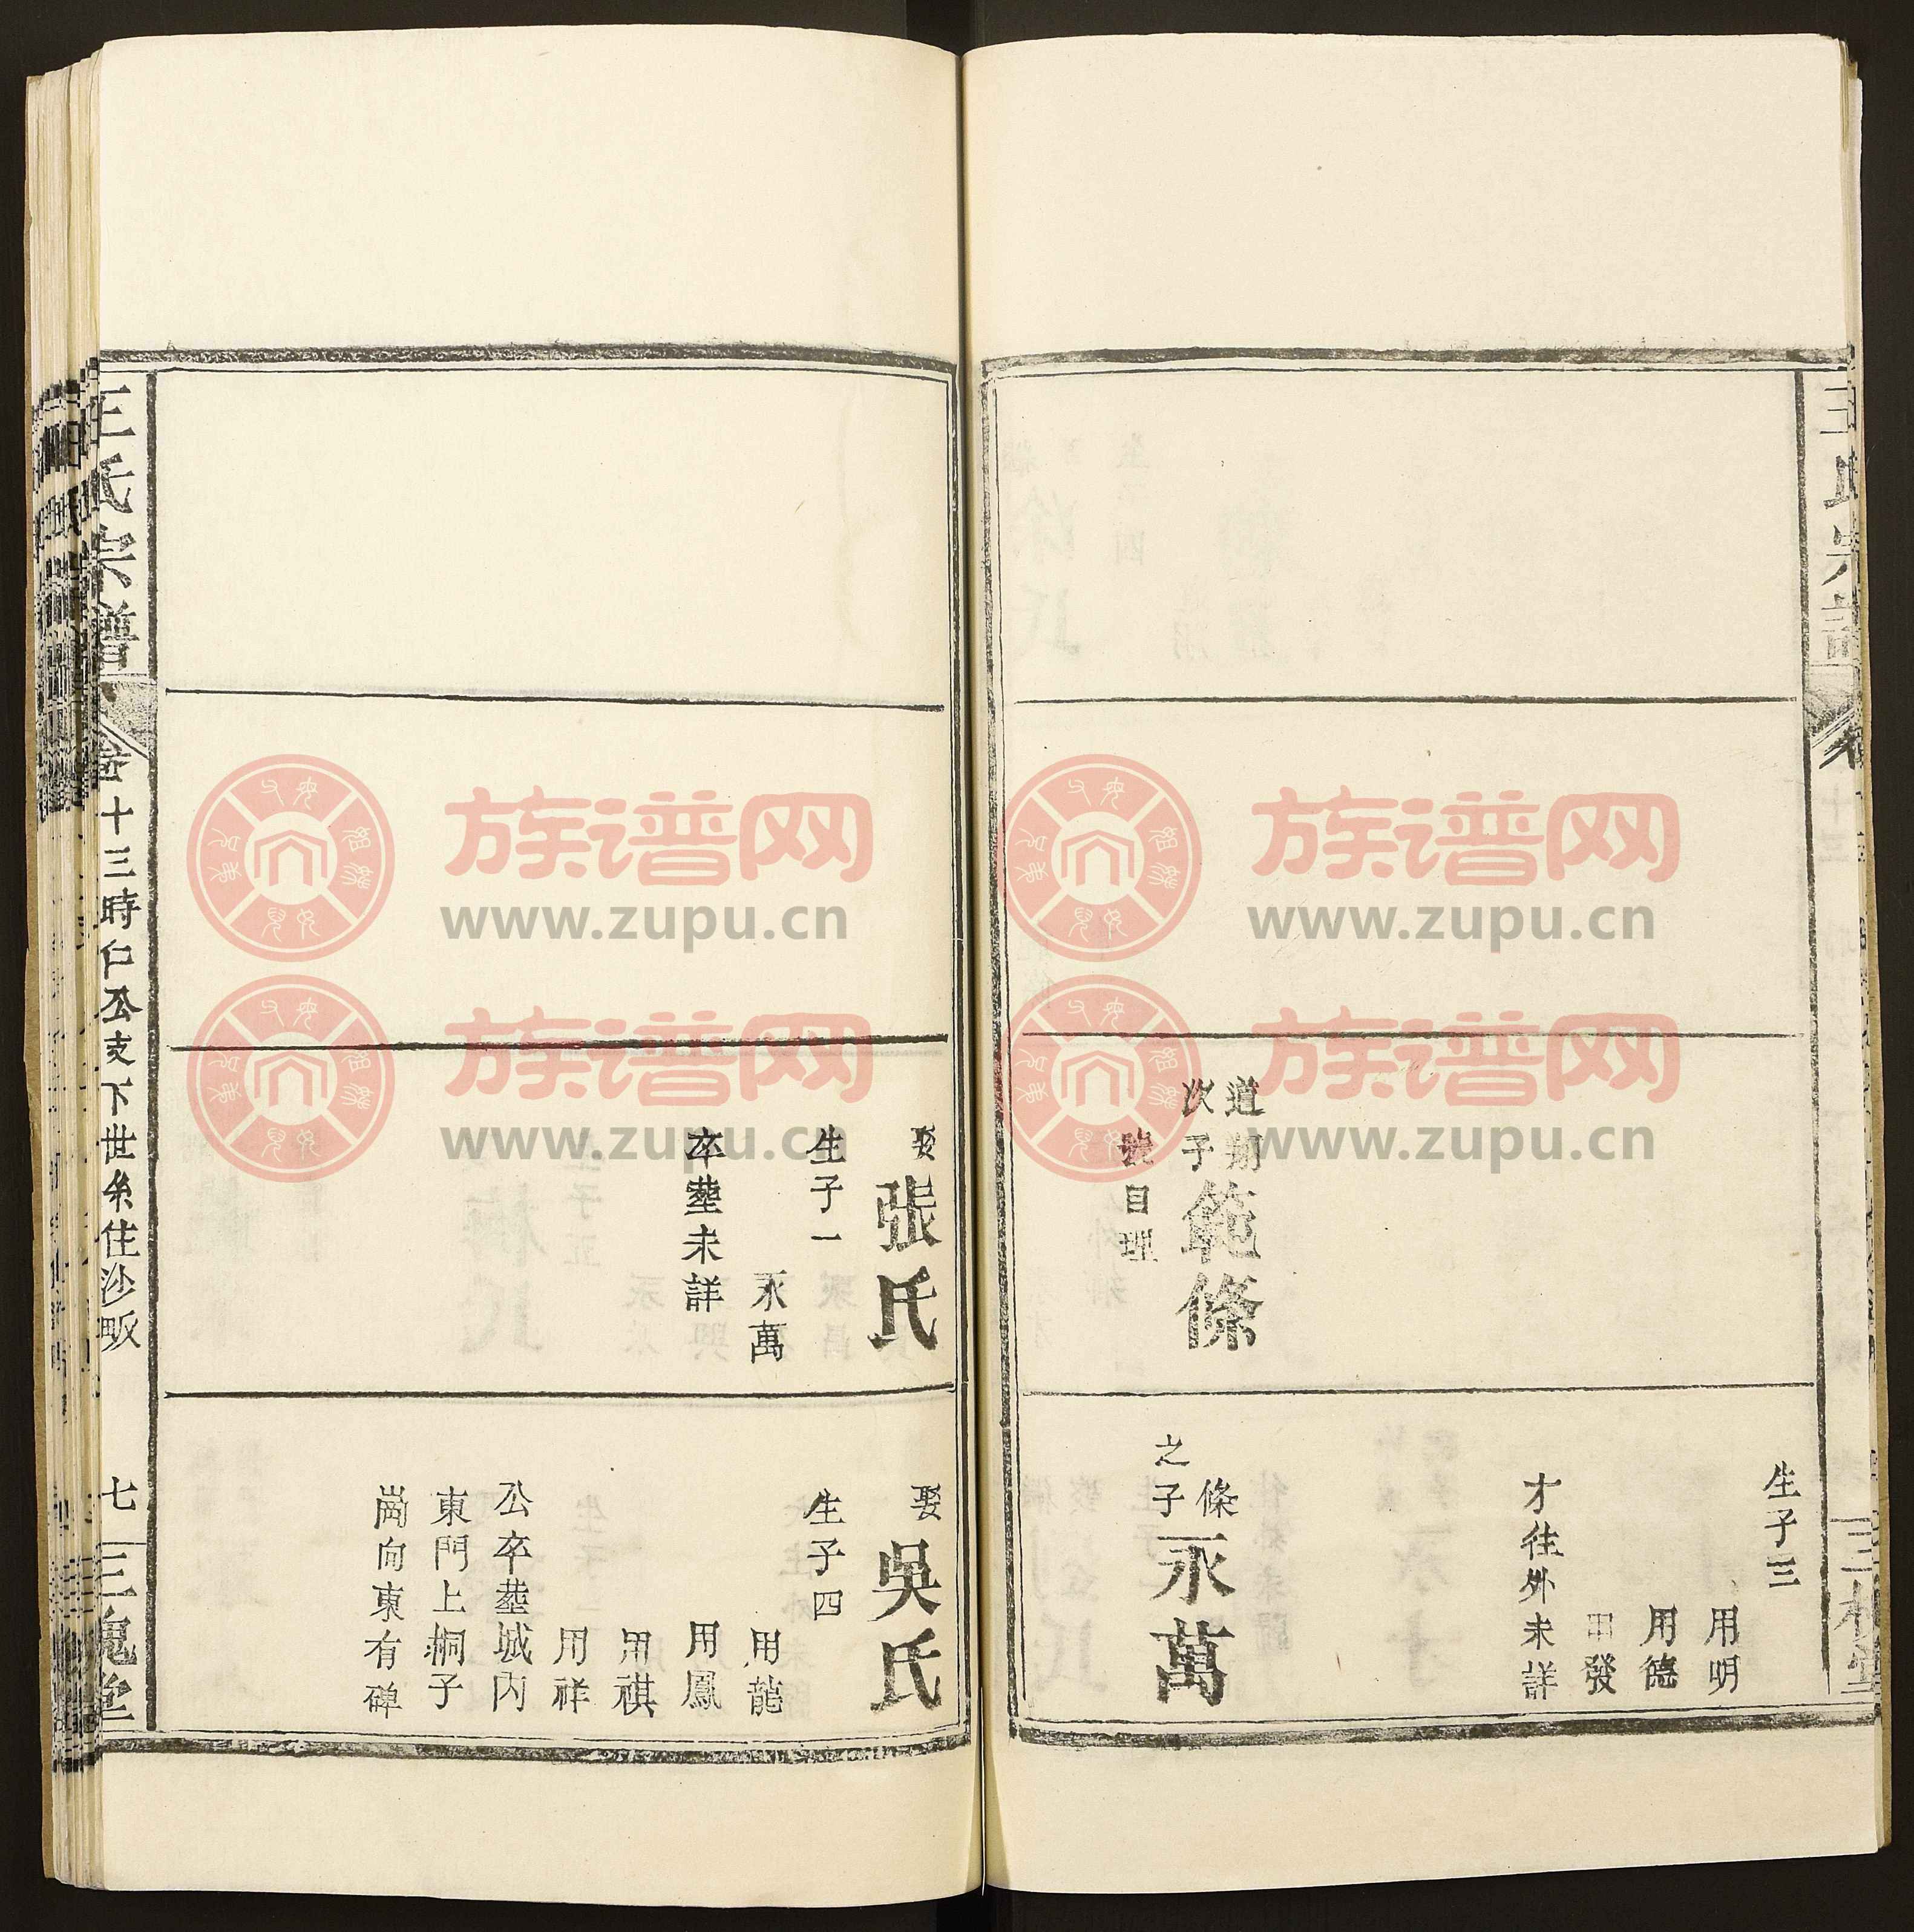 道朔
次子
範條
號自理
生子三
用明
用德
用發
才往外未詳
條
之子
永萬
娶張氏
生子一
永萬
卒塟未詳
娶吳氏
生子四
用龍
用鳳
用祺
用祥
公卒塟城內
東門上桐子
崗向東有碑
王氏宗譜
卷十三時仁公支下世系住沙畈
七
三槐堂
族谱网
www.zupu.cn
族谱网
www.zupu.cn
族谱网
www.zupu.cn
族谱网
www.zupu.cn